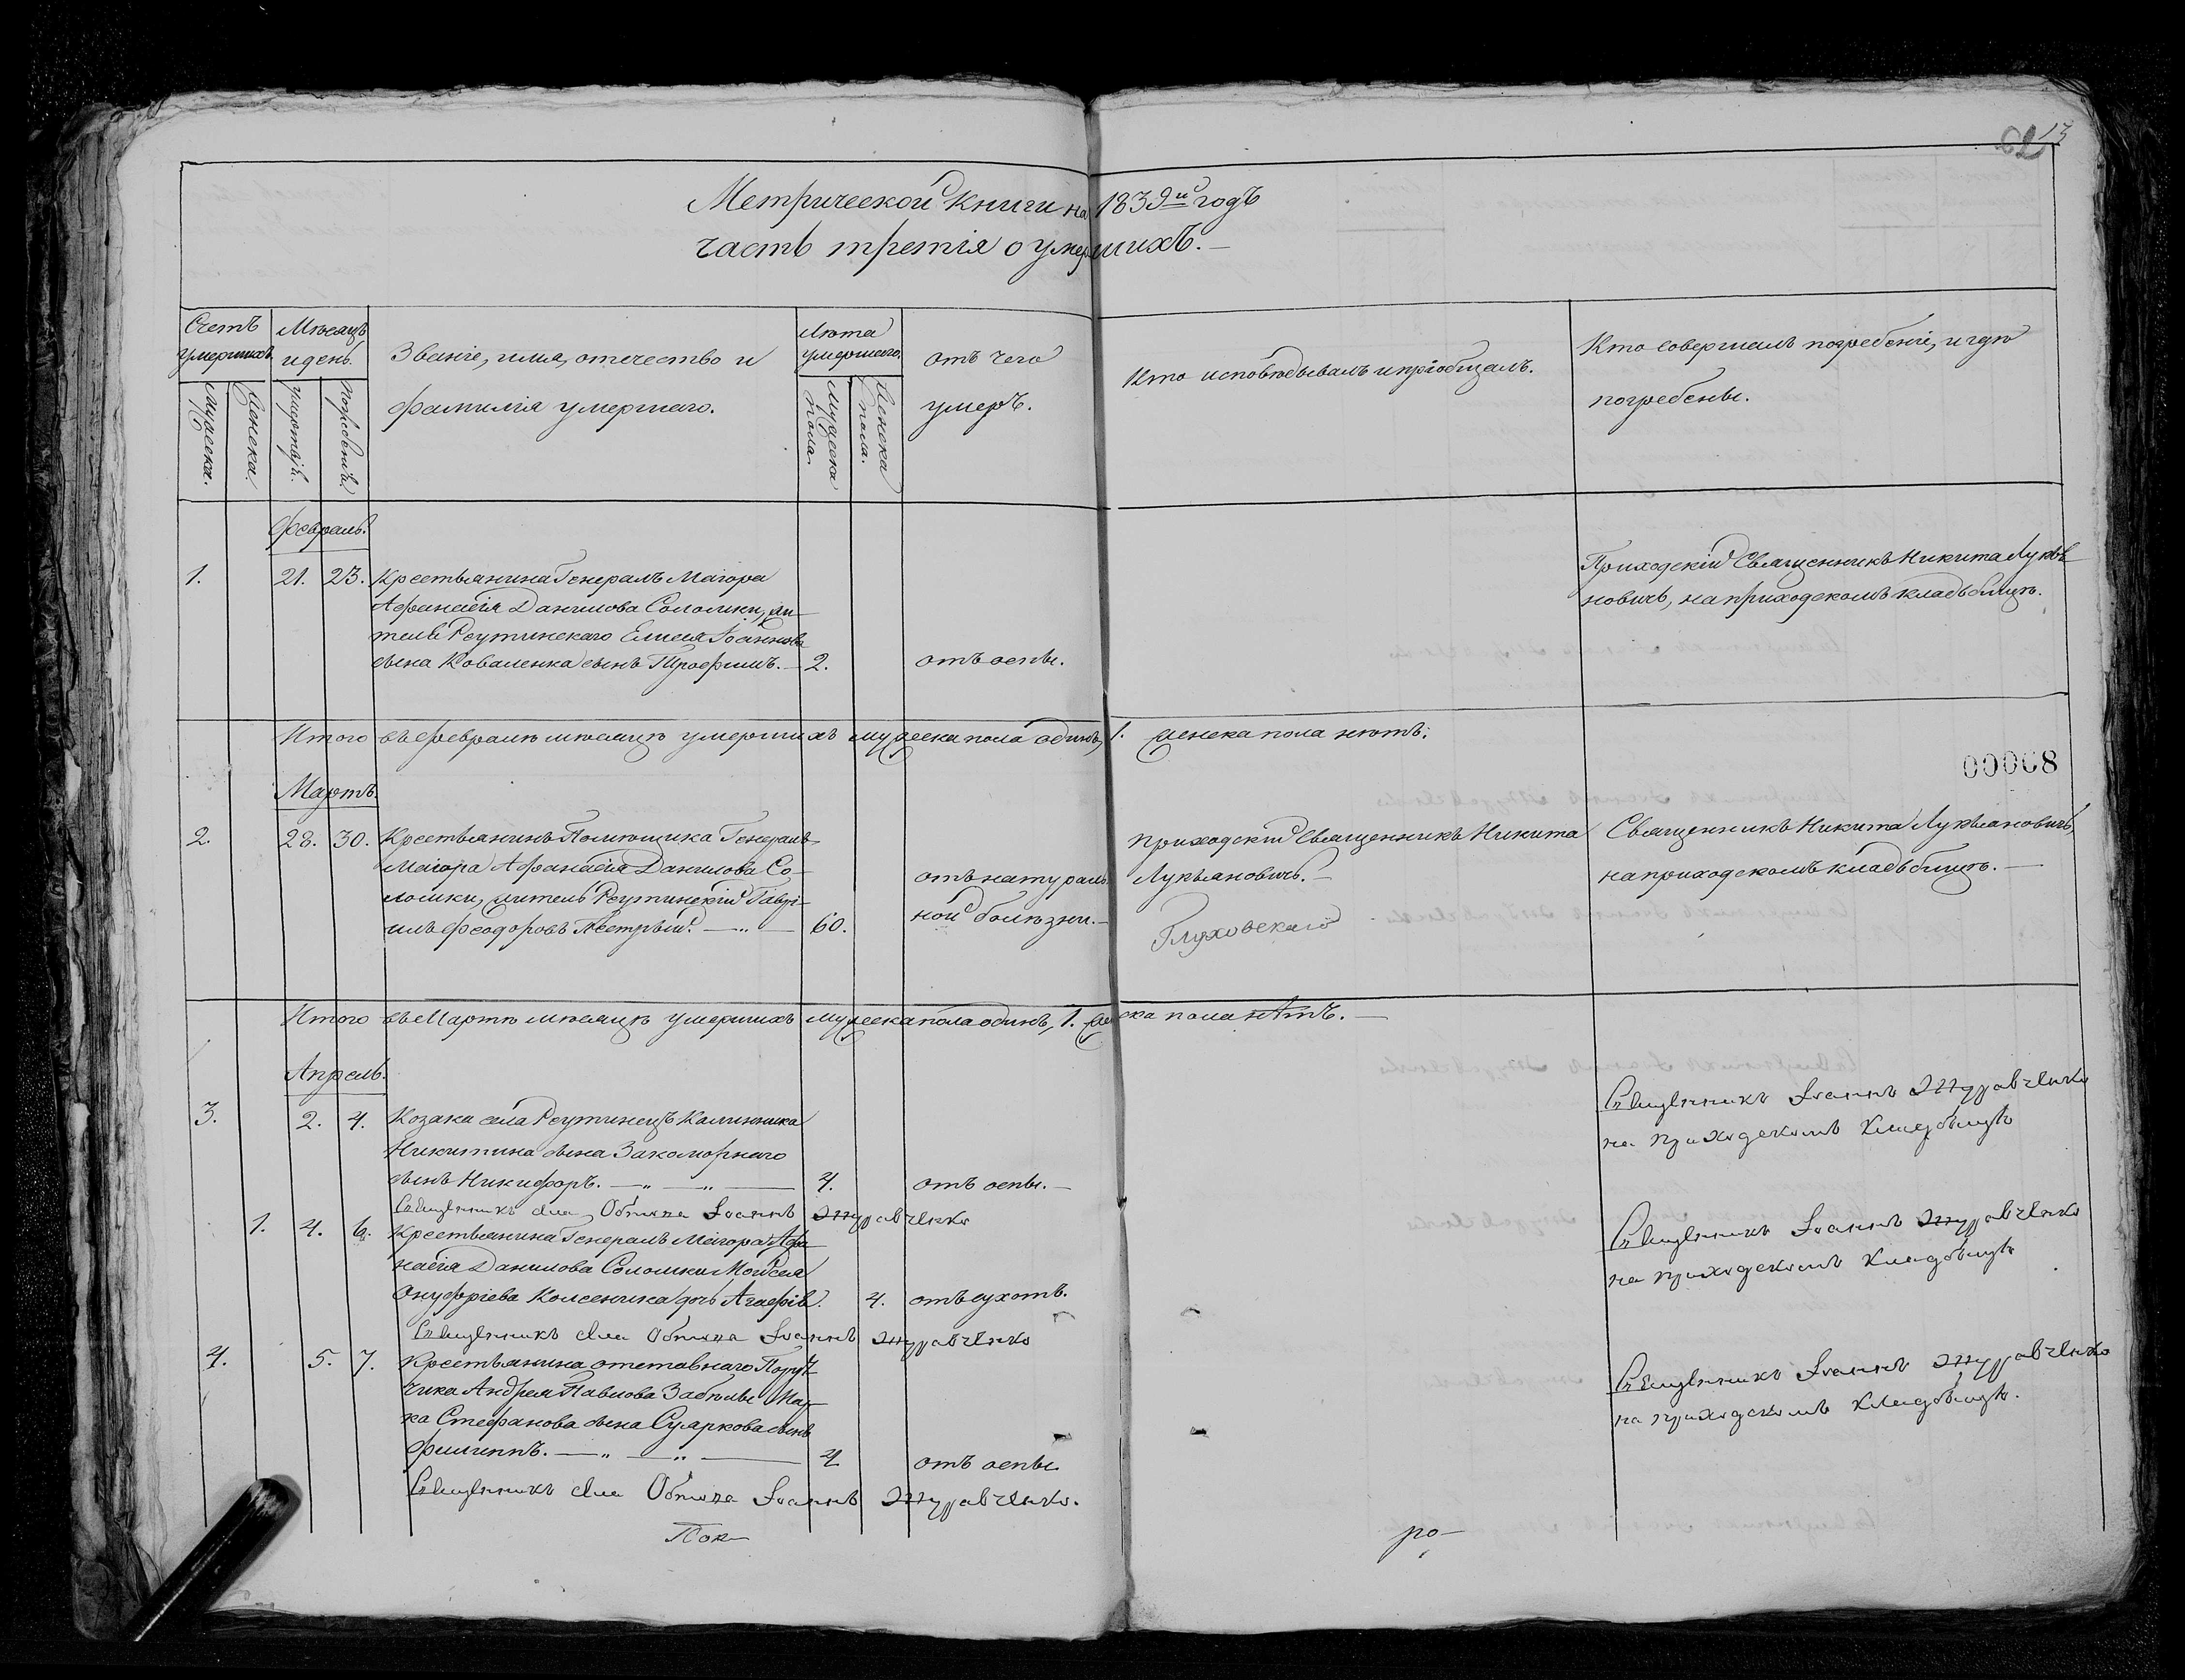 13
Метрической книги на 1839й годъ
часть третія о умершихъ.
Счетъ умершихъ.
Мужеска.
Женска.
Мѣсяцъ и день.
умертвій.
погребеній.
Званіе, имя, отечество и
фамилія умершаго.
Лѣта умершаго.
Мужеска пола.
Женска пола.
отъ чего
умеръ.
Кто исповѣдывалъ и пріобщалъ.
Кто совершалъ погребеніе, и гдѣ
погребены.
Февраль.
1. 21. 23. Крестьянина Генералъ Маіора
Афанасія Данилова Соломки, жи-
теля Реутинскаго Елисея Іоаннова
сына Коваленка сынъ Трофимъ. 2. отъ оспы.
Приходскій Священникъ Никита Лукья
новичъ, на приходскомъ кладъбищѣ.
Итого въ февралѣ мѣсяцѣ умершихъ мужеска пола одинъ, 1. женска пола нѣтъ.
00008
Мартъ.
2. 28. 30. Крестьянинъ Помѣщика Генералъ
Маіора Афанасія Данилова Со-
ломки, житель Реутинскій Гаврі-
илъ Феодоровъ Пестрый. — „ — 60. отъ натураль
ной болѣзни.
Приходскій Священникъ Никита
Лукьяновичъ.
Глуховскаго
Священникъ Никита Лукьяновичъ,
на приходскомъ кладъбищѣ.
Итого въ Мартѣ мѣсяцѣ умершихъ мужеска пола одинъ, 1. женска пола нѣтъ.
Апрель.
3. 2. 4. Козака села Реутинецъ Калинника
Никитина сына Закоморнаго
сынъ Никифоръ. — „ — „ — 4. отъ оспы.
Священникъ села Іоаннъ Журавченко
Священникъ Іоаннъ Журавченко
на приходскомъ кладбищѣ
1. 4. 6. Крестьянина Генералъ Маіора Афа
насія Данилова Соломки Моисея
Онуфріева Колесника дочь Агафія. 4. отъ сухотъ.
Священникъ села Іоаннъ Журавченко
Священникъ Іоаннъ Журавченко
на приходскомъ кладбищѣ
4. 5. 7. Крестьянина отставнаго Поруч
чика Андрея Павлова Забѣлы Мар-
ка Стефанова сына сынъ
Филиппъ. — „ — „ — 4 отъ оспы.
Священникъ села Іоаннъ Журавченко.
Священникъ Іоаннъ Журавченко
на приходскомъ кладбищѣ.
Пок-
ро-